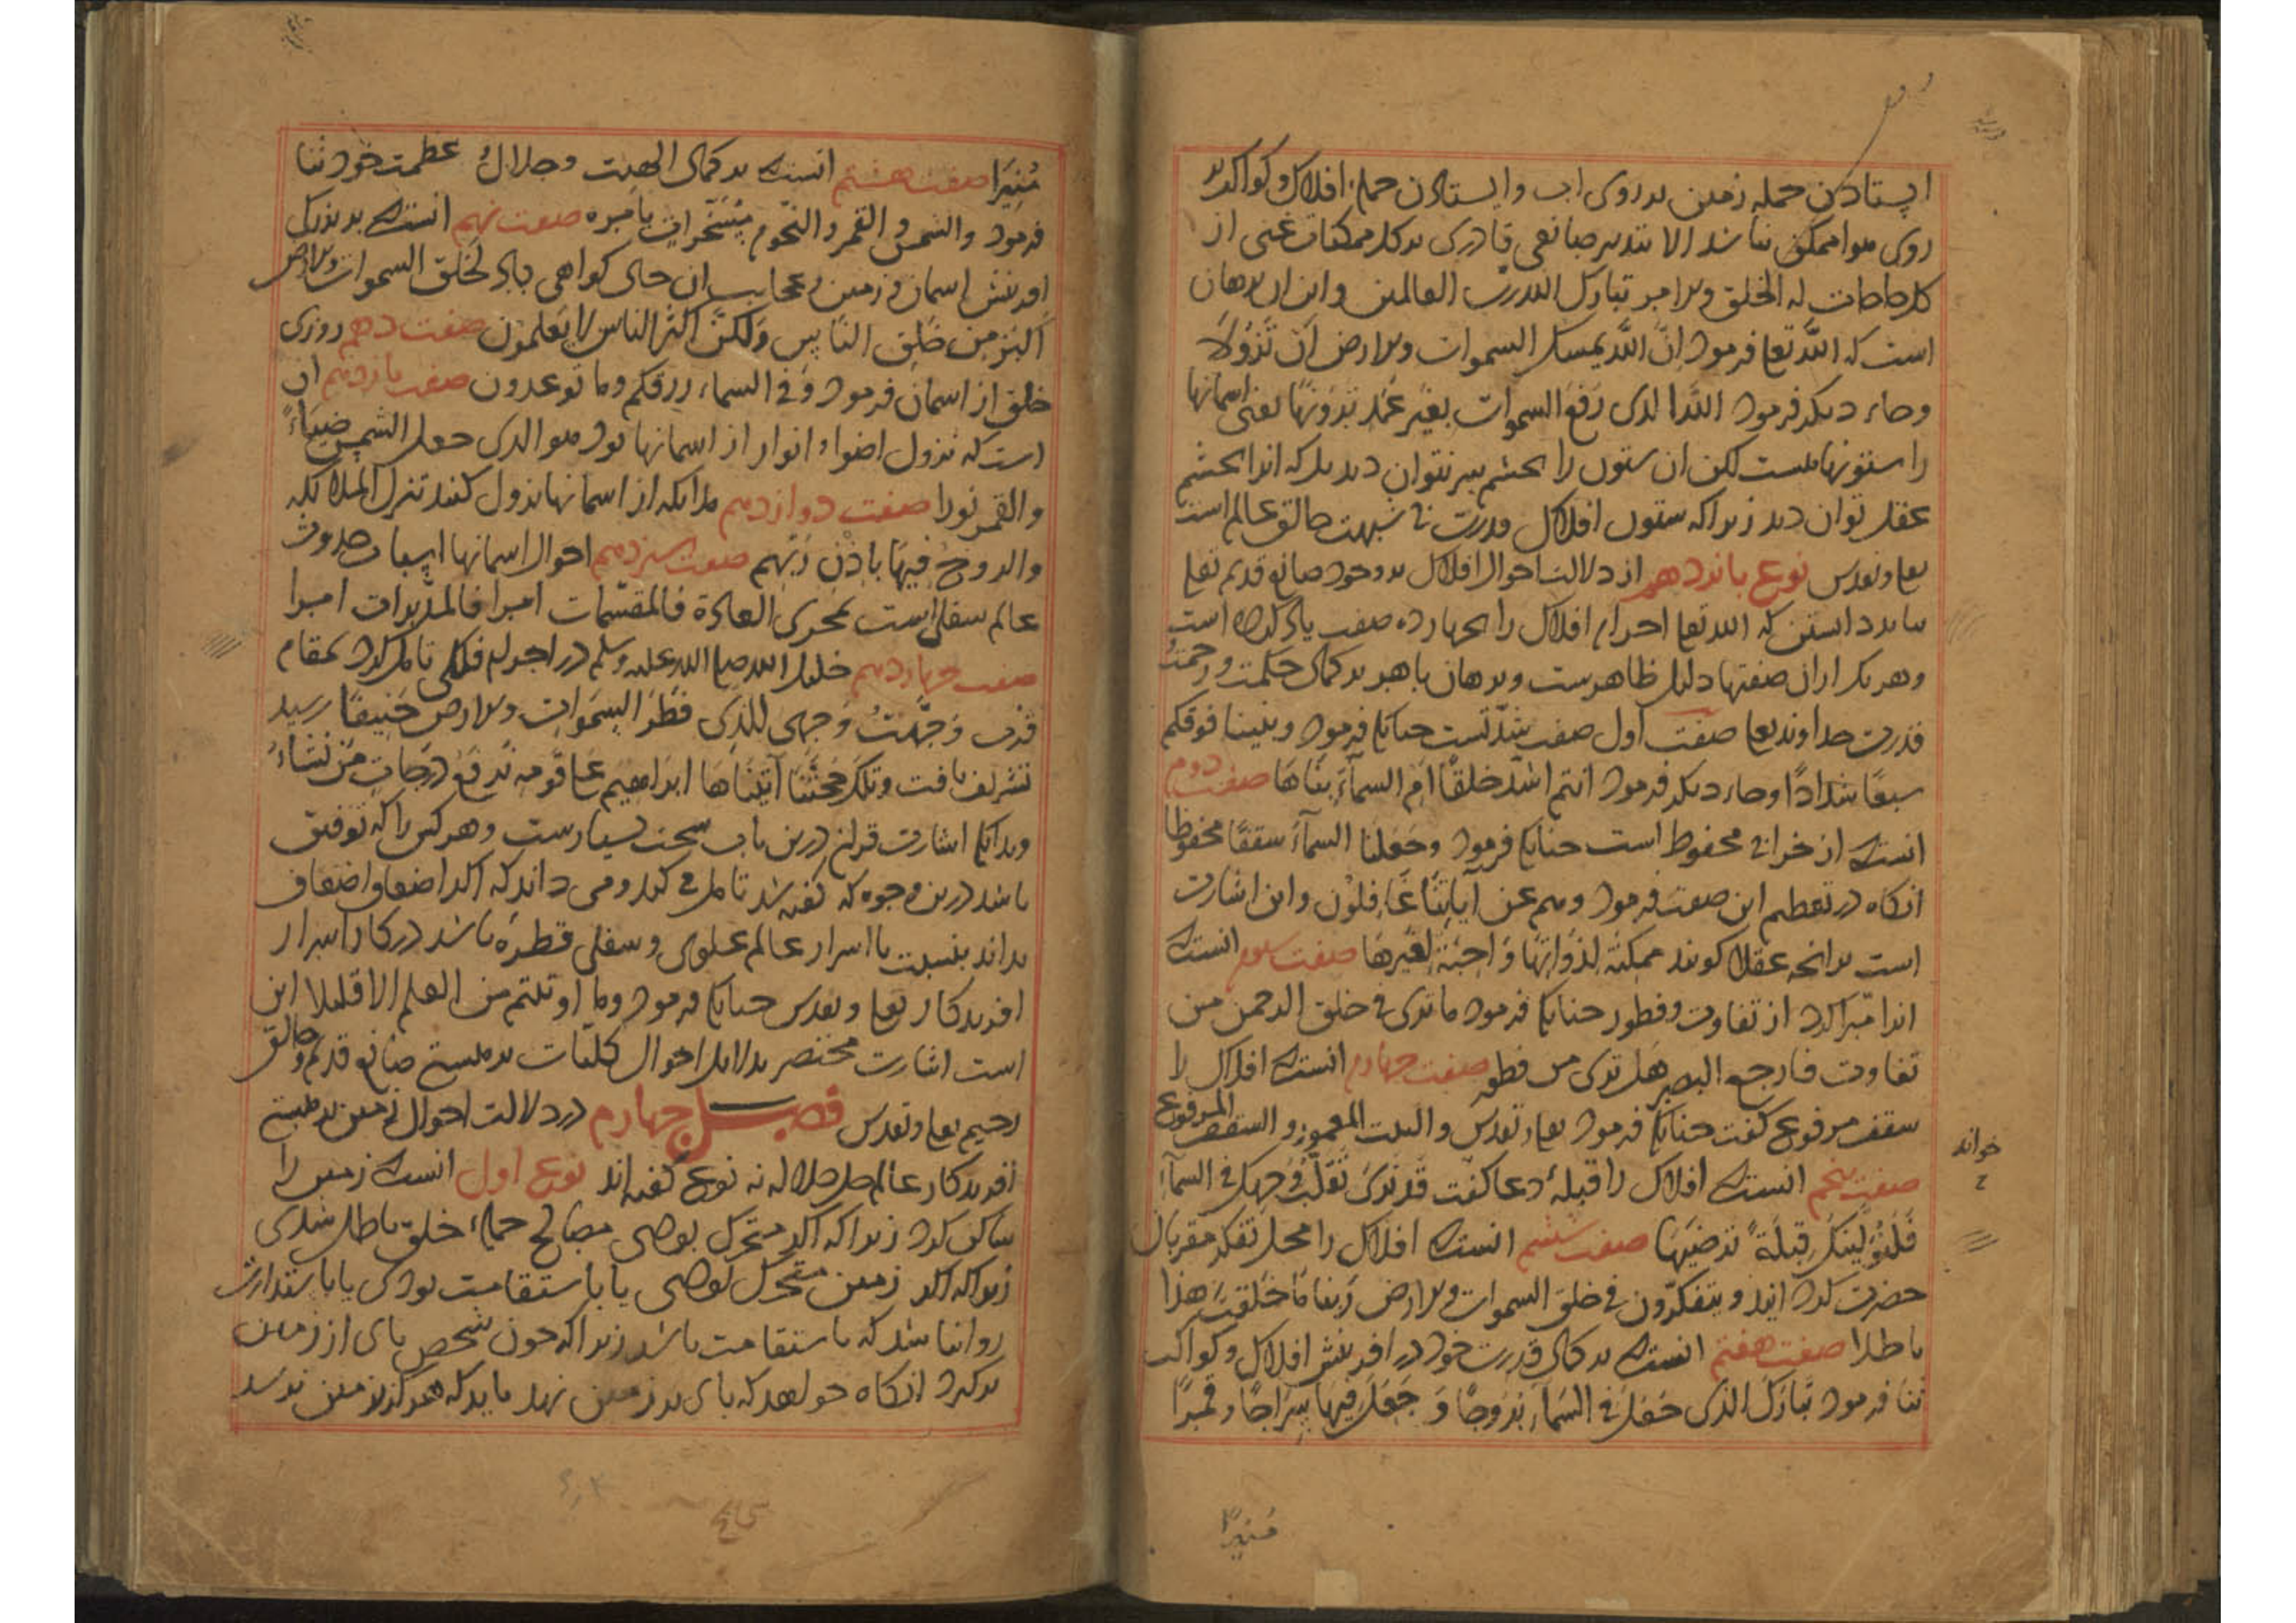 ایستادن جمله زمین بر روی اب و ایستادن جمله افلاک و کواکب بر
روی هوا ممکن نباشد الا بتدبیر صانعی قادری بر کل ممکنات غنی از
کل حاجات له الخلق والامر تبارک الله رب العالمین و این ان برهان
است که الله تعا فرمود اِنَّ اللّه یمسک السموات والارض اَن تَزُولَا
و جاء دیکر فرمود اللّه الذی رَفَعَ السموات بغَیر عَمَد تَرَونَهَا یعنی اسمانها
را ستونهاست لکن ان ستون را بچشم سر نتوان دید بلکه انرا بچشم
عقل توان دید زیرا که ستون افلاک قدرت بی شبهت خالق عالم است
تعا و تقدس نوع پانزدهم از دلالت احوال افلاک بر وجود صانع قدیم تعا
بباید دانستن که الله تعا اجرام افلاک را بچهارده صفت یاد کرده است
و هر یک از ان صفتها دلیل ظاهرست و برهان باهر بر کمال حکمت و رحمت
قدرت خداوند تعا صفت اول صفت شدتست چنانک فرمود وبنینا فوقکم
سبعًا شدادًا و جاء دیکر فرمود ءانتم اشدّ خلقًا ام السمآءِ بنَاهَا صفت دوم
انست که از خرابی محفوظ است چنانک فرمود وجَعَلنا السمآءَ سقفًا محفوظا
انکاه در تعظیم این صفت فرمود وهم عن آیاتِنَا غَافِلوُن و این اشارت
است بر انچه عقلا کویند ممکنَة لذَواتِهَا وَاجبَة لغَیرهَا صفت سوم انست که
انرا مبّرا کرد از تفاوت و فطور چنانک فرمود ما تری فی خلق الرحمن من
تفاوت فارجع البصر هَل تری من فطور صفت چهارم انست که افلاک را
سقف مرفوع کفت چنانک فرمود تعا و تقدس والبیت المعمور والسقف المرفوع
صفت پنجم انست که افلاک را قبلهٔ دعا کفت قد نَریَ تَقلّبُ وَجهِک فی السمآءِ
فَلَنُوَلِّیَنکَ قِبلَةً ترضَیهَا صفت ششم انست که افلاک را محل تفکر مقربان
حضرت کرد ایند ویتفکرّون فی خلق السموات والارض رَبنا مَا خَلقتَ هذا
باطلا صفت هفتم انست که بر کمال قدرت خود در افرینش افلاک و کواکب
ثنا فرمود تَبارَکَ الذی جَعَلَ فی السَمآءِ بُرُوجًا وَجَعَلَ فِیهَا سِرَاجًا وقمرًا
مُنیرًا
خواند
مُنِیرَا صفت هشتم انست که بر کمال الهیت و جلالُ عظمت خود ثنا
فرمود والشمس والقمر والنجوم مُسَخّراتٍ بامره صفت نهم انست که بر بزرکی
افرینش اسمان و زمین و عجایب ان حال کواهی داد لَخَلق السموات والارض
اَکبَر مِن خَلقِ النّاسِ وَلکنّ اکثرَ الناس لا یَعلمُون صفت دهم روزی
خلق از اسمان فرمود وَفی السماء رزقکم وما توعدون صفت یازدهم ان
است که نزول اضوا و انوار از اسمانها بود هو الذی جعل الشمس ضیَاءً
والقمر نورا صفت دوازدهم ملایکه از اسمانها نزول کنند تنزل الملائکه
والروحُ فیهَا باذن رَبّهِم صفت سیزدهم احوال اسمانها اسباب حدوث
عالم سفلی است بمجری العادة فالمقسّمات امرا فالمدّبرات امرا
صفت چهاردهم خلیل الله صلی الله علیه وسلم در اجرام فلکی تامل کرد بمقام
قرب وَجّهتُ وَجهی للذِی فَطَرَ السمَوات والارض حَنیفًا رسید
تشریف یافت وتلک حُجتُنَا آتینَاهَا ابراهیم عَلَی قومِهِ نَرفَعُ دَرَجاتٍ مَن نشَاءُ
و بدانک اشارت قران درین باب سخت بسیارست و هر کس را که توفیق
باشد درین وجوه که کفته شد تامل می کند و می داند که اکر اضعاف اضعاف
بداند بنسبت با اسرار عالم علوی و سفلی قطرهٔ باشد در کار اسرار
افریدکار تعا و تقدس چنانک فرمود وما اوتیتم من العلم الا قلیلا این
است اشارت مختصر بدلایل احوال کلیّات بر هستی صانع قدیم و خالق
رحیم تعا و تقدس فصل چهارم در دلالت احوال زمین بر هستی
افریدکار عالم جل جلاله نه نوع کفته اند نوع اول انست که زمین را
ساکن کرد زیرا که اکر متحرک بودی مصالح جملهٔ خلق باطل شدی
زیرا که اکر زمین متحرک بودی یا باستقامت بودی یا باستدارت
روا نباشد که باستقامت باشد زیرا که چون شخص پای از زمین
برکیرد انکاه خواهد که پای بر زمین نهد باید که هرکز بزمین نرسد